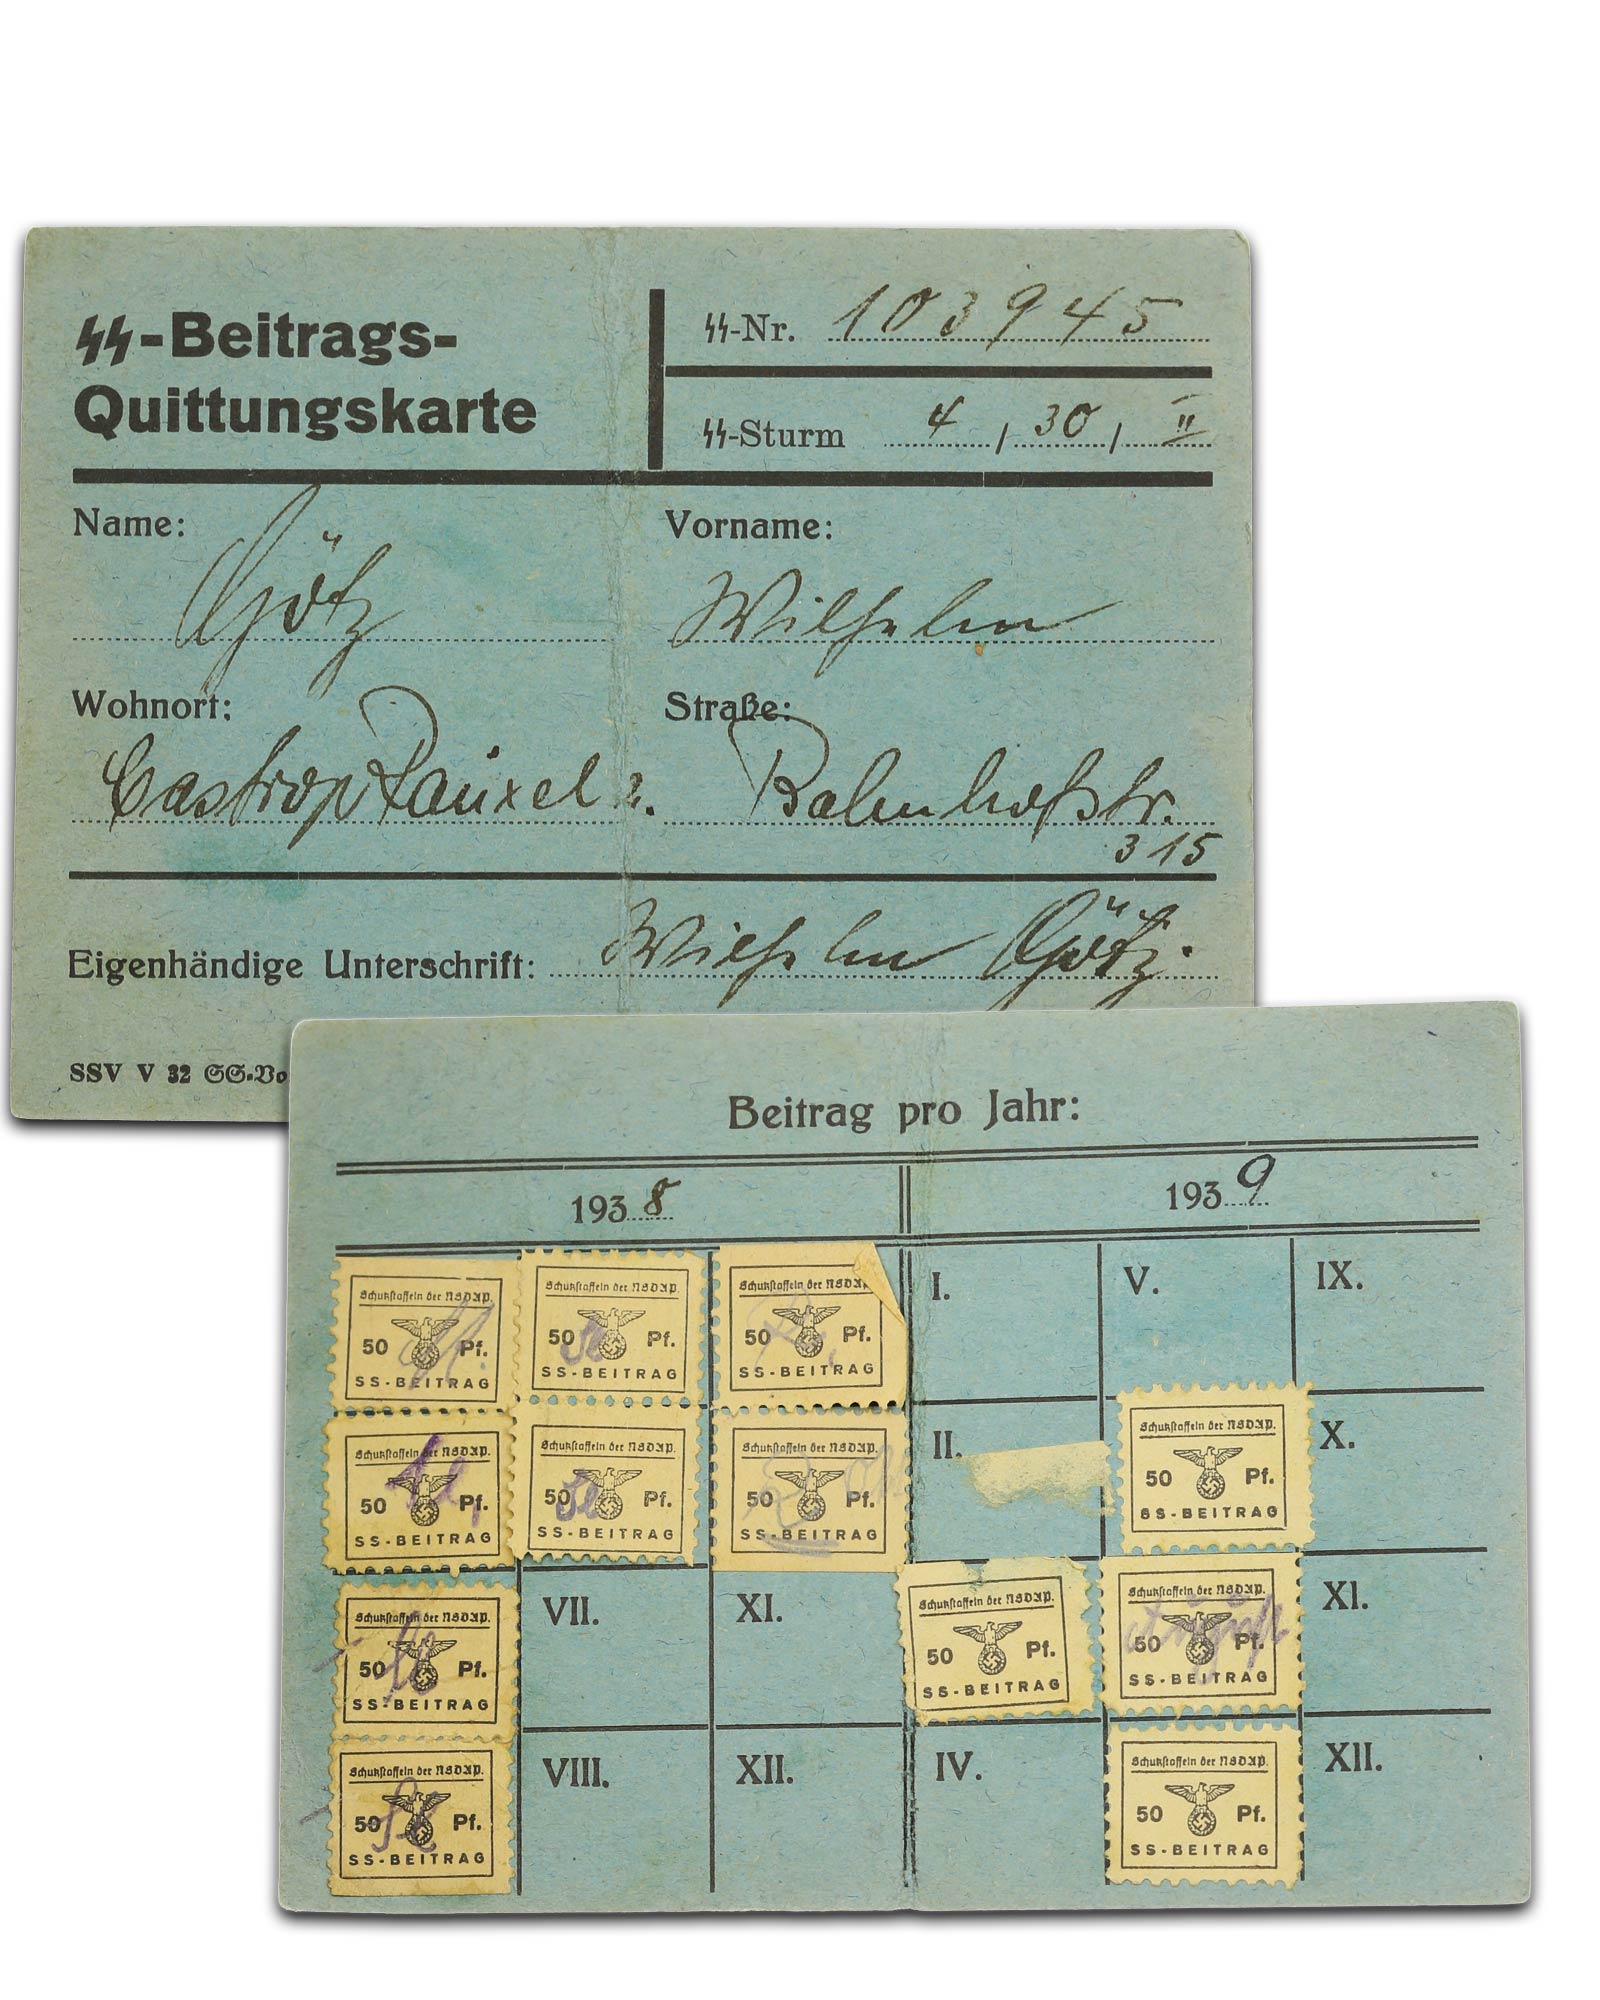 SS-Beitrags-
Quittungskarte
SS-Nr. 103945
SS-Sturm 4 / 30 / II
Name: Götz
Vorname: Wilhelm
Wohnort: Castrop Rauxel 2.
Straße: Bahnhofstr.
315
Eigenhändige Unterschrift: Wilhelm Götz.
SSV V 32 SS-Vo
Beitrag pro Jahr:
1938
1939
Schutzstaffeln der NSDAP.
50 Pf.
SS-BEITRAG
Schutzstaffeln der NSDAP.
50 Pf.
SS-BEITRAG
Schutzstaffeln der NSDAP.
50 Pf.
SS-BEITRAG
I.
V.
IX.
Schutzstaffeln der NSDAP.
50 Pf.
SS-BEITRAG
Schutzstaffeln der NSDAP.
50 Pf.
SS-BEITRAG
Schutzstaffeln der NSDAP.
50 Pf.
SS-BEITRAG
II.
Schutzstaffeln der NSDAP.
50 Pf.
SS-BEITRAG
X.
Schutzstaffeln der NSDAP.
50 Pf.
SS-BEITRAG
VII.
XI.
Schutzstaffeln der NSDAP.
50 Pf.
SS-BEITRAG
Schutzstaffeln der NSDAP.
50 Pf.
SS-BEITRAG
August
XI.
Schutzstaffeln der NSDAP.
50 Pf.
SS-BEITRAG
VIII.
XII.
IV.
Schutzstaffeln der NSDAP.
50 Pf.
SS-BEITRAG
XII.